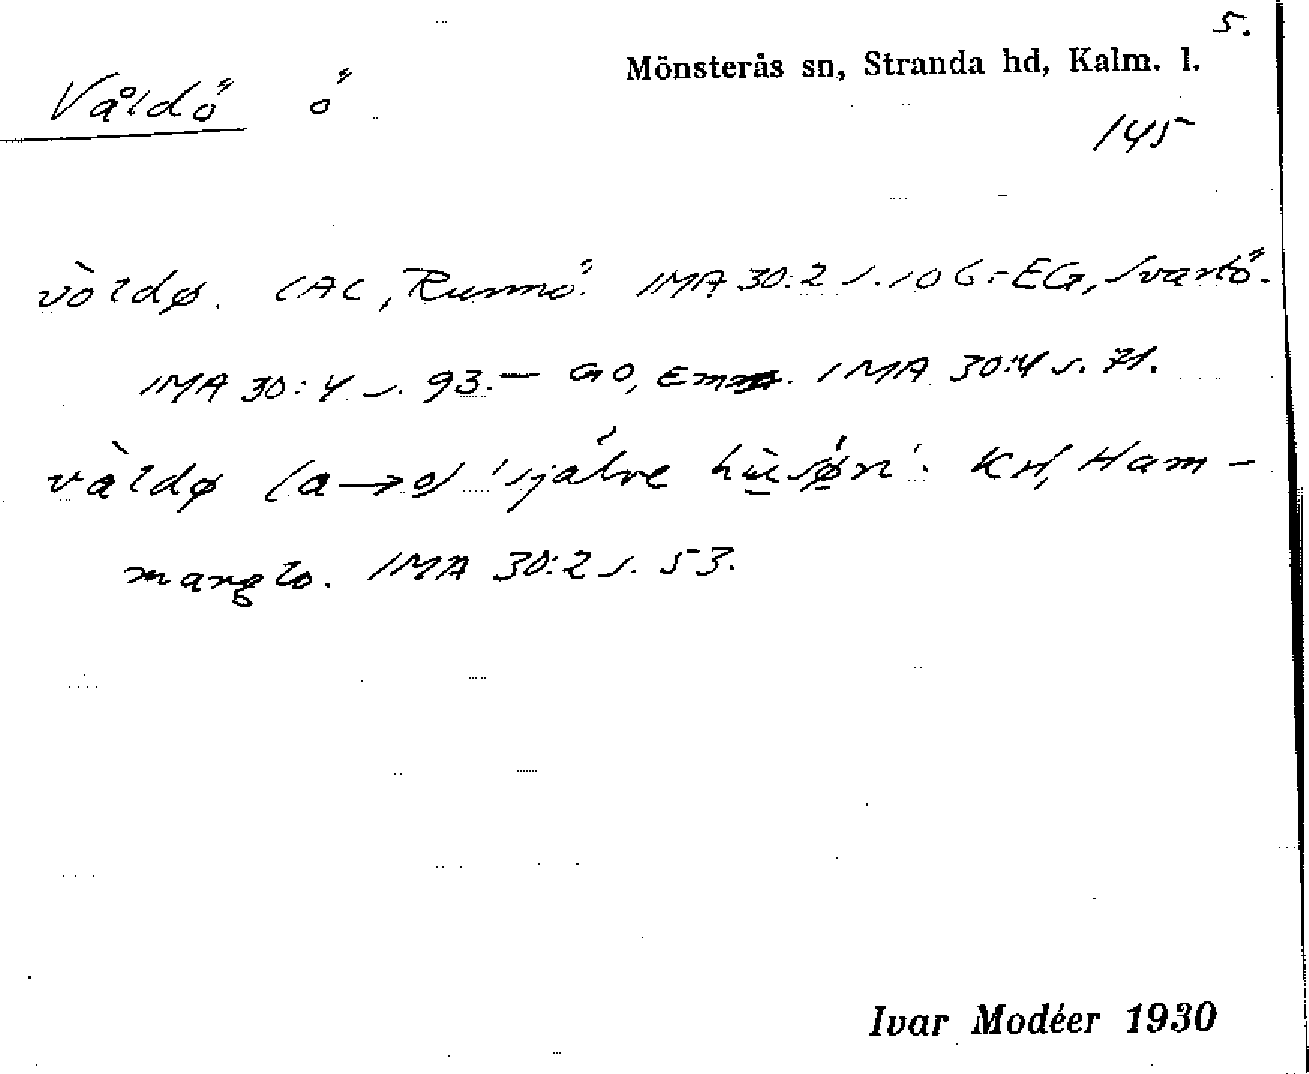 5.
Mönsterås sn, Stranda hd, Kalm. l.
Våldö ö
145
vòldø. CAC, Runnö. IMA 30:2 s. 106.- EG, Svartö.
IMA 30:4 s. 93. — GO, Em. IMA 30:4 s. 71.
vàldø (a→o) 'själve hùsøn'. KH, Ham-
marglo. IMA 30:2 s. 53.
Ivar Modéer 1930